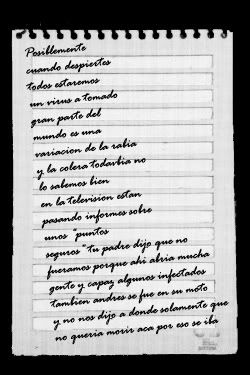 Posiblemente
cuando despiertes
todos estaremos
un virus a tomado
gran parte del
mundo es una
variacion de la rabia
y la colera todavbia no
lo sabemos bien
en la television estan
pasando informes sobre
unos "puntos
seguros" tu padre dijo que no
fueramos porque ahi abria mucha
gente y capaz algunos infectados
tambien andres se fue en su moto
y no nos dijo a donde solamente que
no queria morir aca por eso se iba